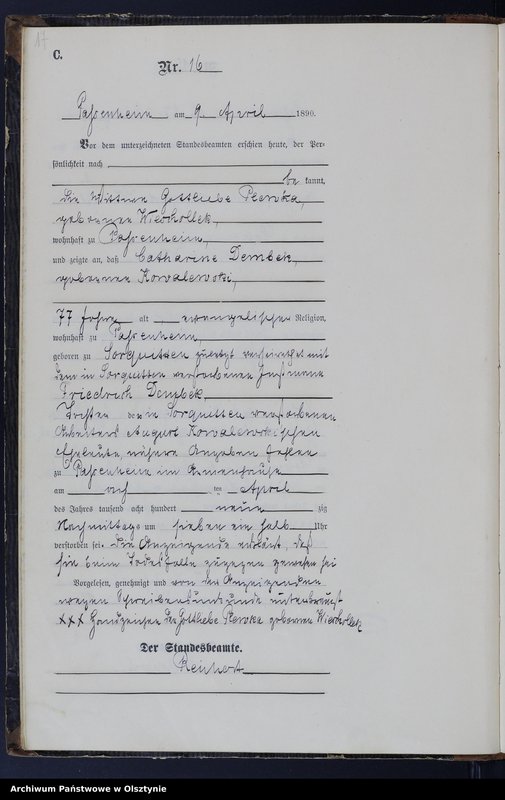 17
C.
Nr. 16
Passenheim am 9. April 1890.
Vor dem unterzeichneten Standesbeamten erschien heute, der Per=
sönlichkeit nach
be kannt,
die Wittwe Gottliebe Plewka,
geborene Wieskollek,
wohnhaft zu Passenheim,
und zeigte an, daß Catharine Dembek,
geborene Kowalewski,
77 Jahre alt evangelischer Religion,
wohnhaft zu Passenheim,
geboren zu Torquetten zuletzt verheirathet mit
dem in verstorbenen
Friedrich Dembek,
Tochter der in verstorbenen
Arbeiter August Kowalewskischen
Eheleute, nähere Angaben fehlen
zu Passenheim im Armenhause
am acht ten April
des Jahres tausend acht hundert neun zig
Nachmittags um sieben ein halb Uhr
verstorben sei. Die Anzeigende erklärt, daß
sie beim Todesfalle zugegen gewesen sei
Vorgelesen, genehmigt und von der Anzeigenden
wegen Schreibensunkunde unterkreuzt
XXX Handzeichen der Gottliebe Plewka geborenen Wieskollek
Der Standesbeamte.
Reichert
Archiwum Państwowe w Olsztynie